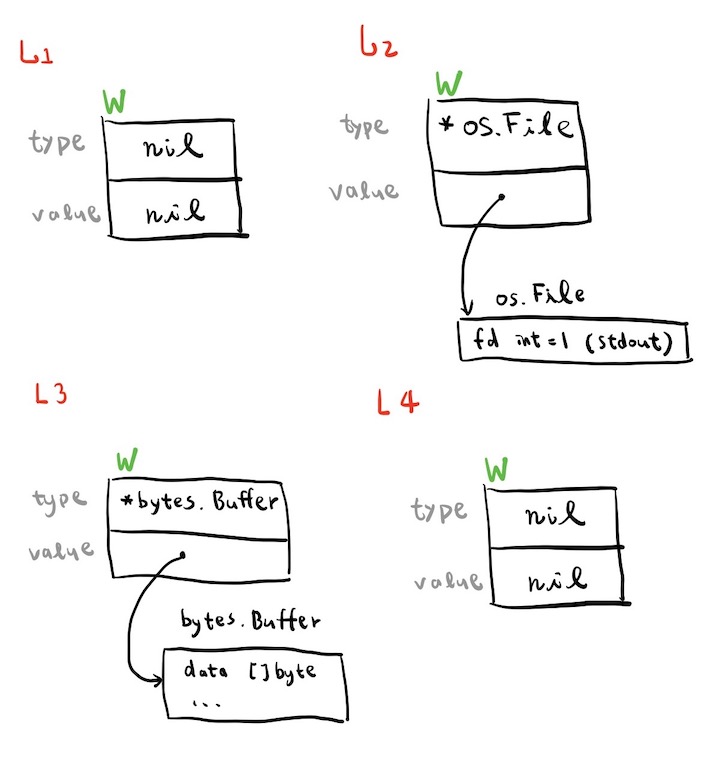 L1
W
type nil
value nil
L2
W
type * os.File
value
os.File
fd int = 1 (stdout)
L3
W
type *bytes.Buffer
value
bytes.Buffer
data []byte
...
L4
W
type nil
value nil